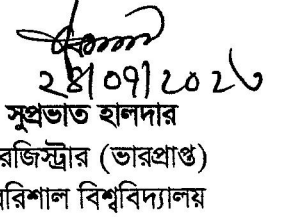 সুপ্রভাত হালদার
রজিস্ট্রার (ভারপ্রাপ্ত)
রিশাল বিশ্ববিদ্যালয়